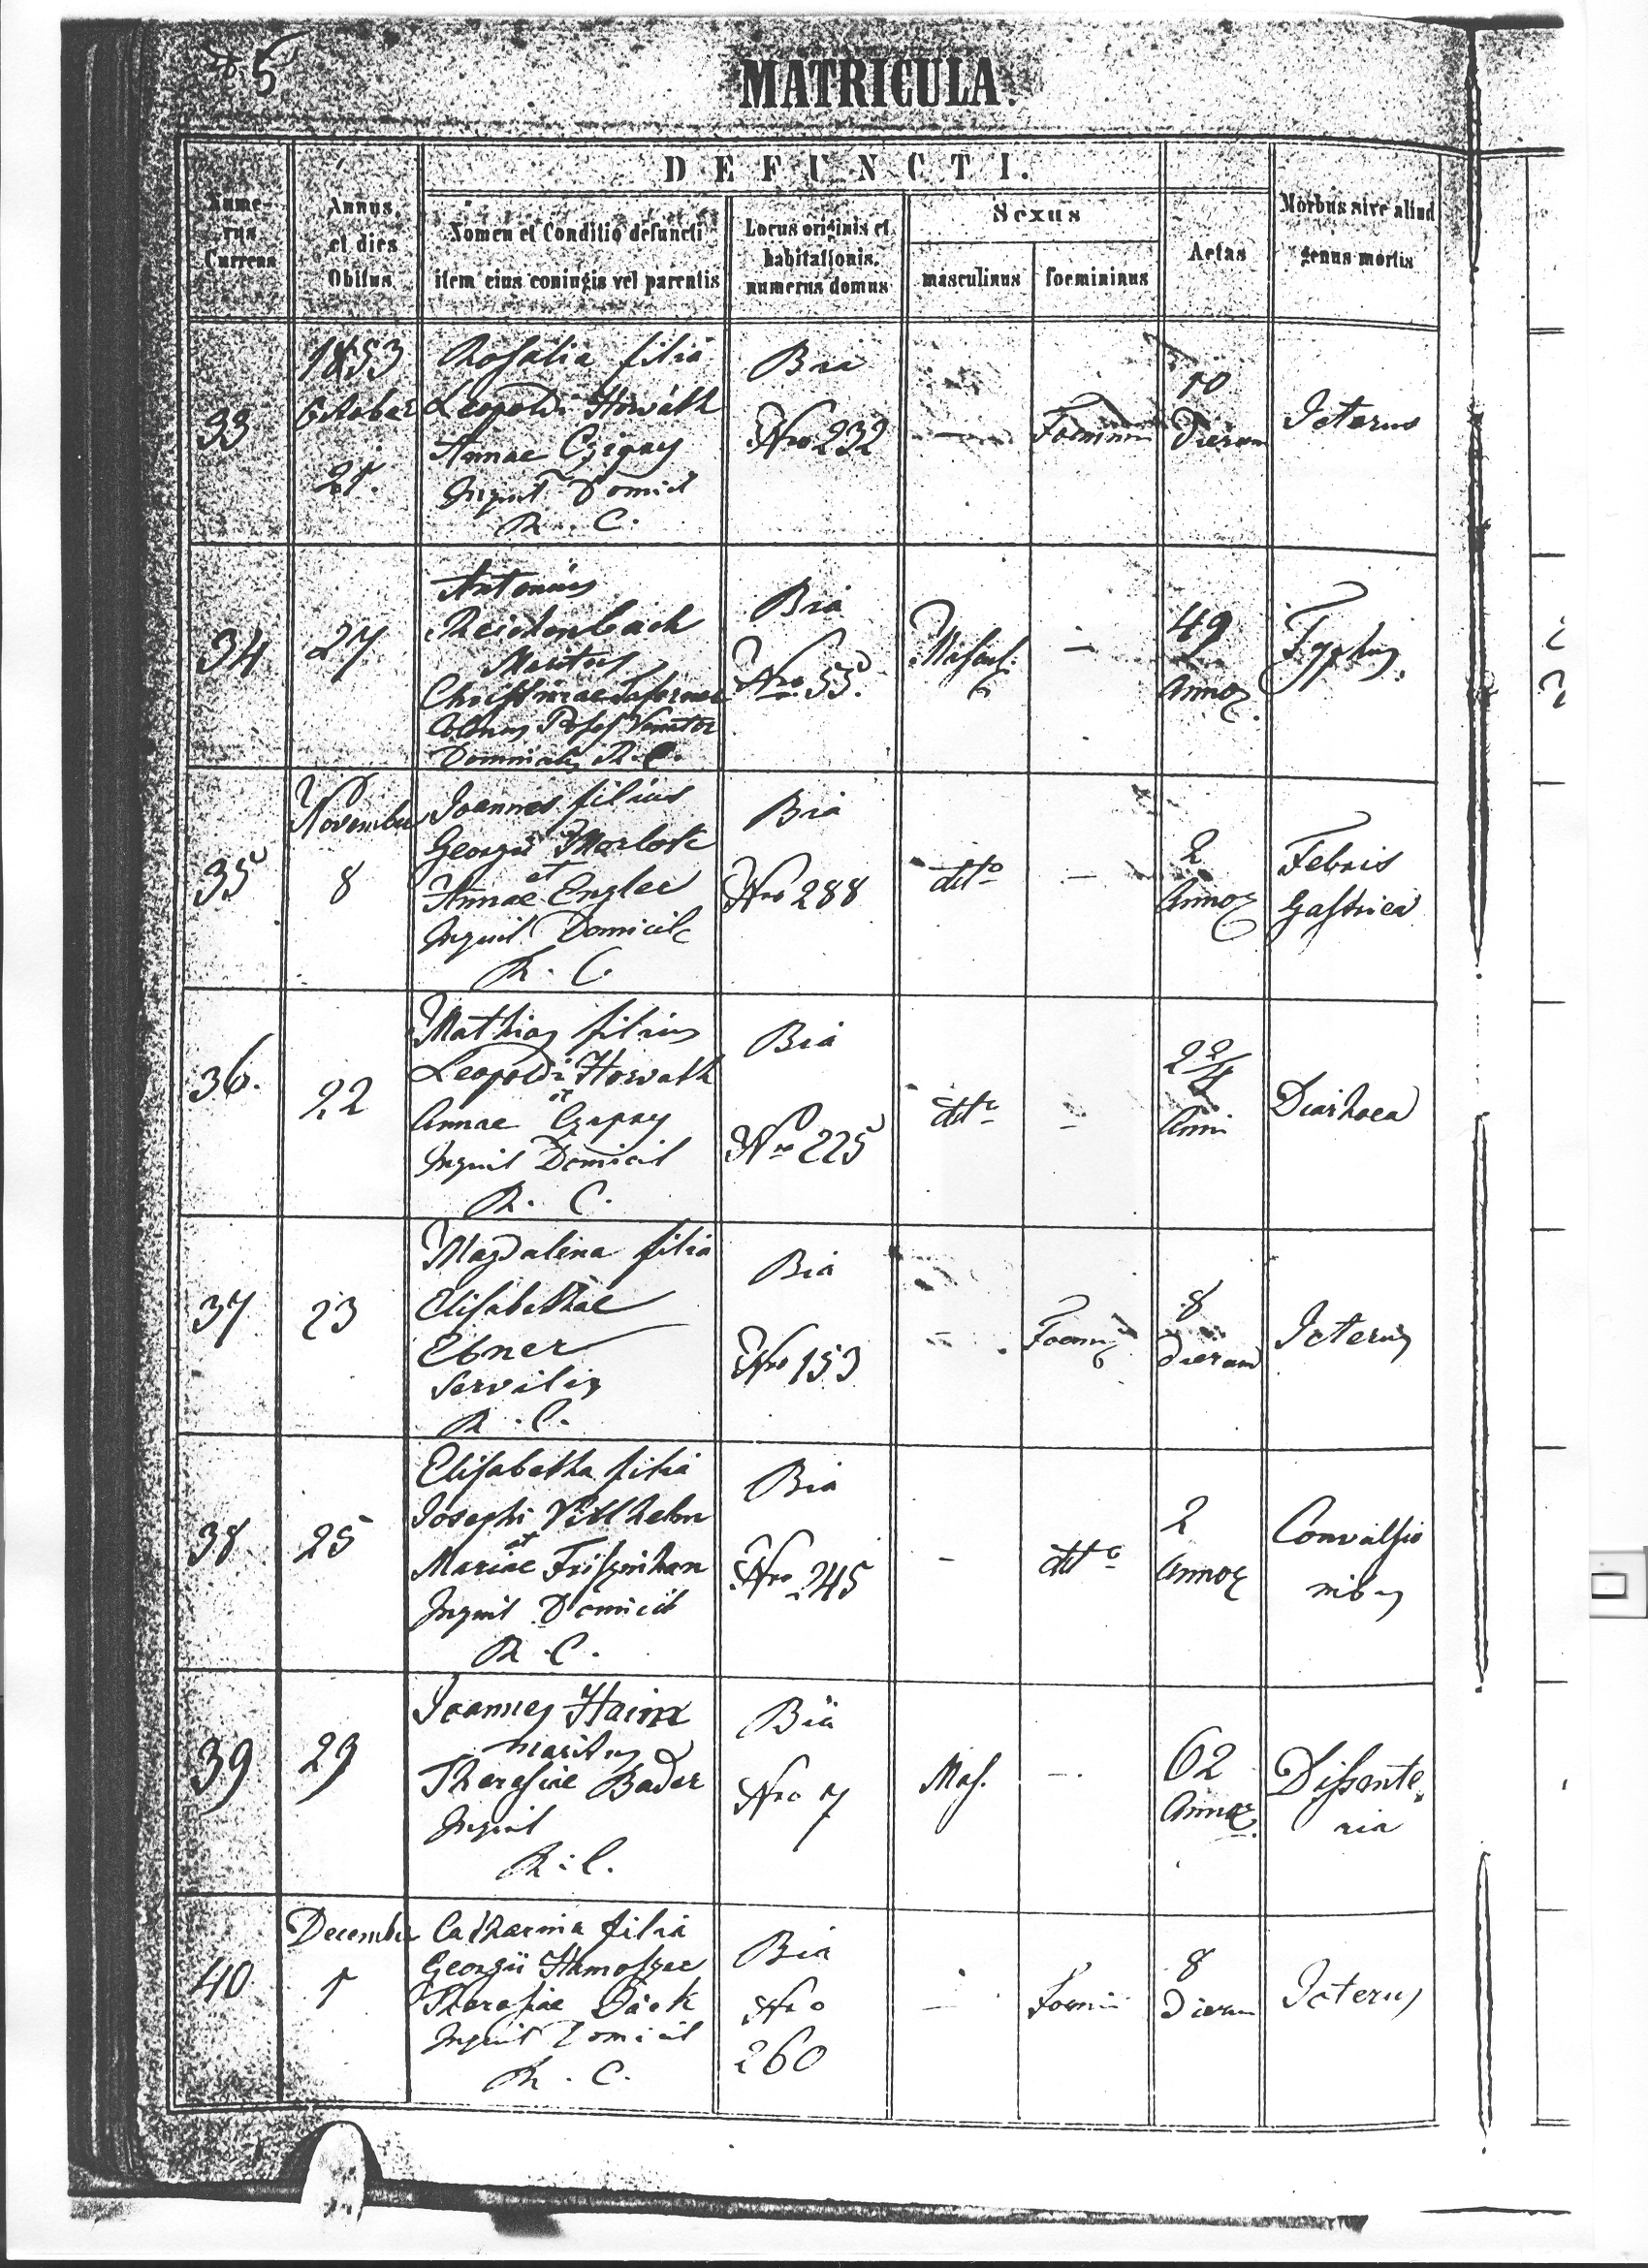 5
MATRICULA.
DEFUNCTI.
Nume-
rus
Currens
Annus
et dies
Obitus
Nomen et Conditio defuncti
item eius coniugis vel parentis
Locus originis et
habitationis.
numerus domus
Sexus
masculinus
foemininus
Aetas
Morbus sive aliud
genus mortis
33
1853
October
21.
Rosalia filia
Leopoldi Horváth
Annae
Inquil Domicil
R. C.
Bia
Nro 232
—
10
Dierum
Icterus
34
27
Antonius
Reichenbach
Maritus
Christinae
Colonus
R. C.
Bia
Nro 55.
—
49
Typhus.
35
November
8
Joannes filius
Georgii
et
Annae Engler
Inquil Domicil
R. C.
Bia
Nro 288
ditto
—
2
Febris
Gastrica
36.
22
Mathias filius
Leopoldi Horvath
et
Annae
Inquil Domicil
R. C.
Bia
Nro 225
ditto
—
Anni
Diarhoea
37
23
Magdalena filia
Elisabethae
Ebner
Servilis
R. C.
Bia
Nro 153
—
8
Dierum
Icterus
38
25
Elisabetha filia
Josephi Villhelm
et
Mariae
Inquil Domicil
R. C.
Bia
Nro 245
—
ditto
2
Convulsio
nibus
39
29
Joannes
maritus
Theresiae Bader
Inquil
R. C.
Bia
Nro 7
Mas.
—
62
Dissente
ria
40
December
1
Catharina filia
Georgii
Theresiae
Inquil Domicil
R. C.
Bia
Nro
260
—
8
Dierum
Icterus